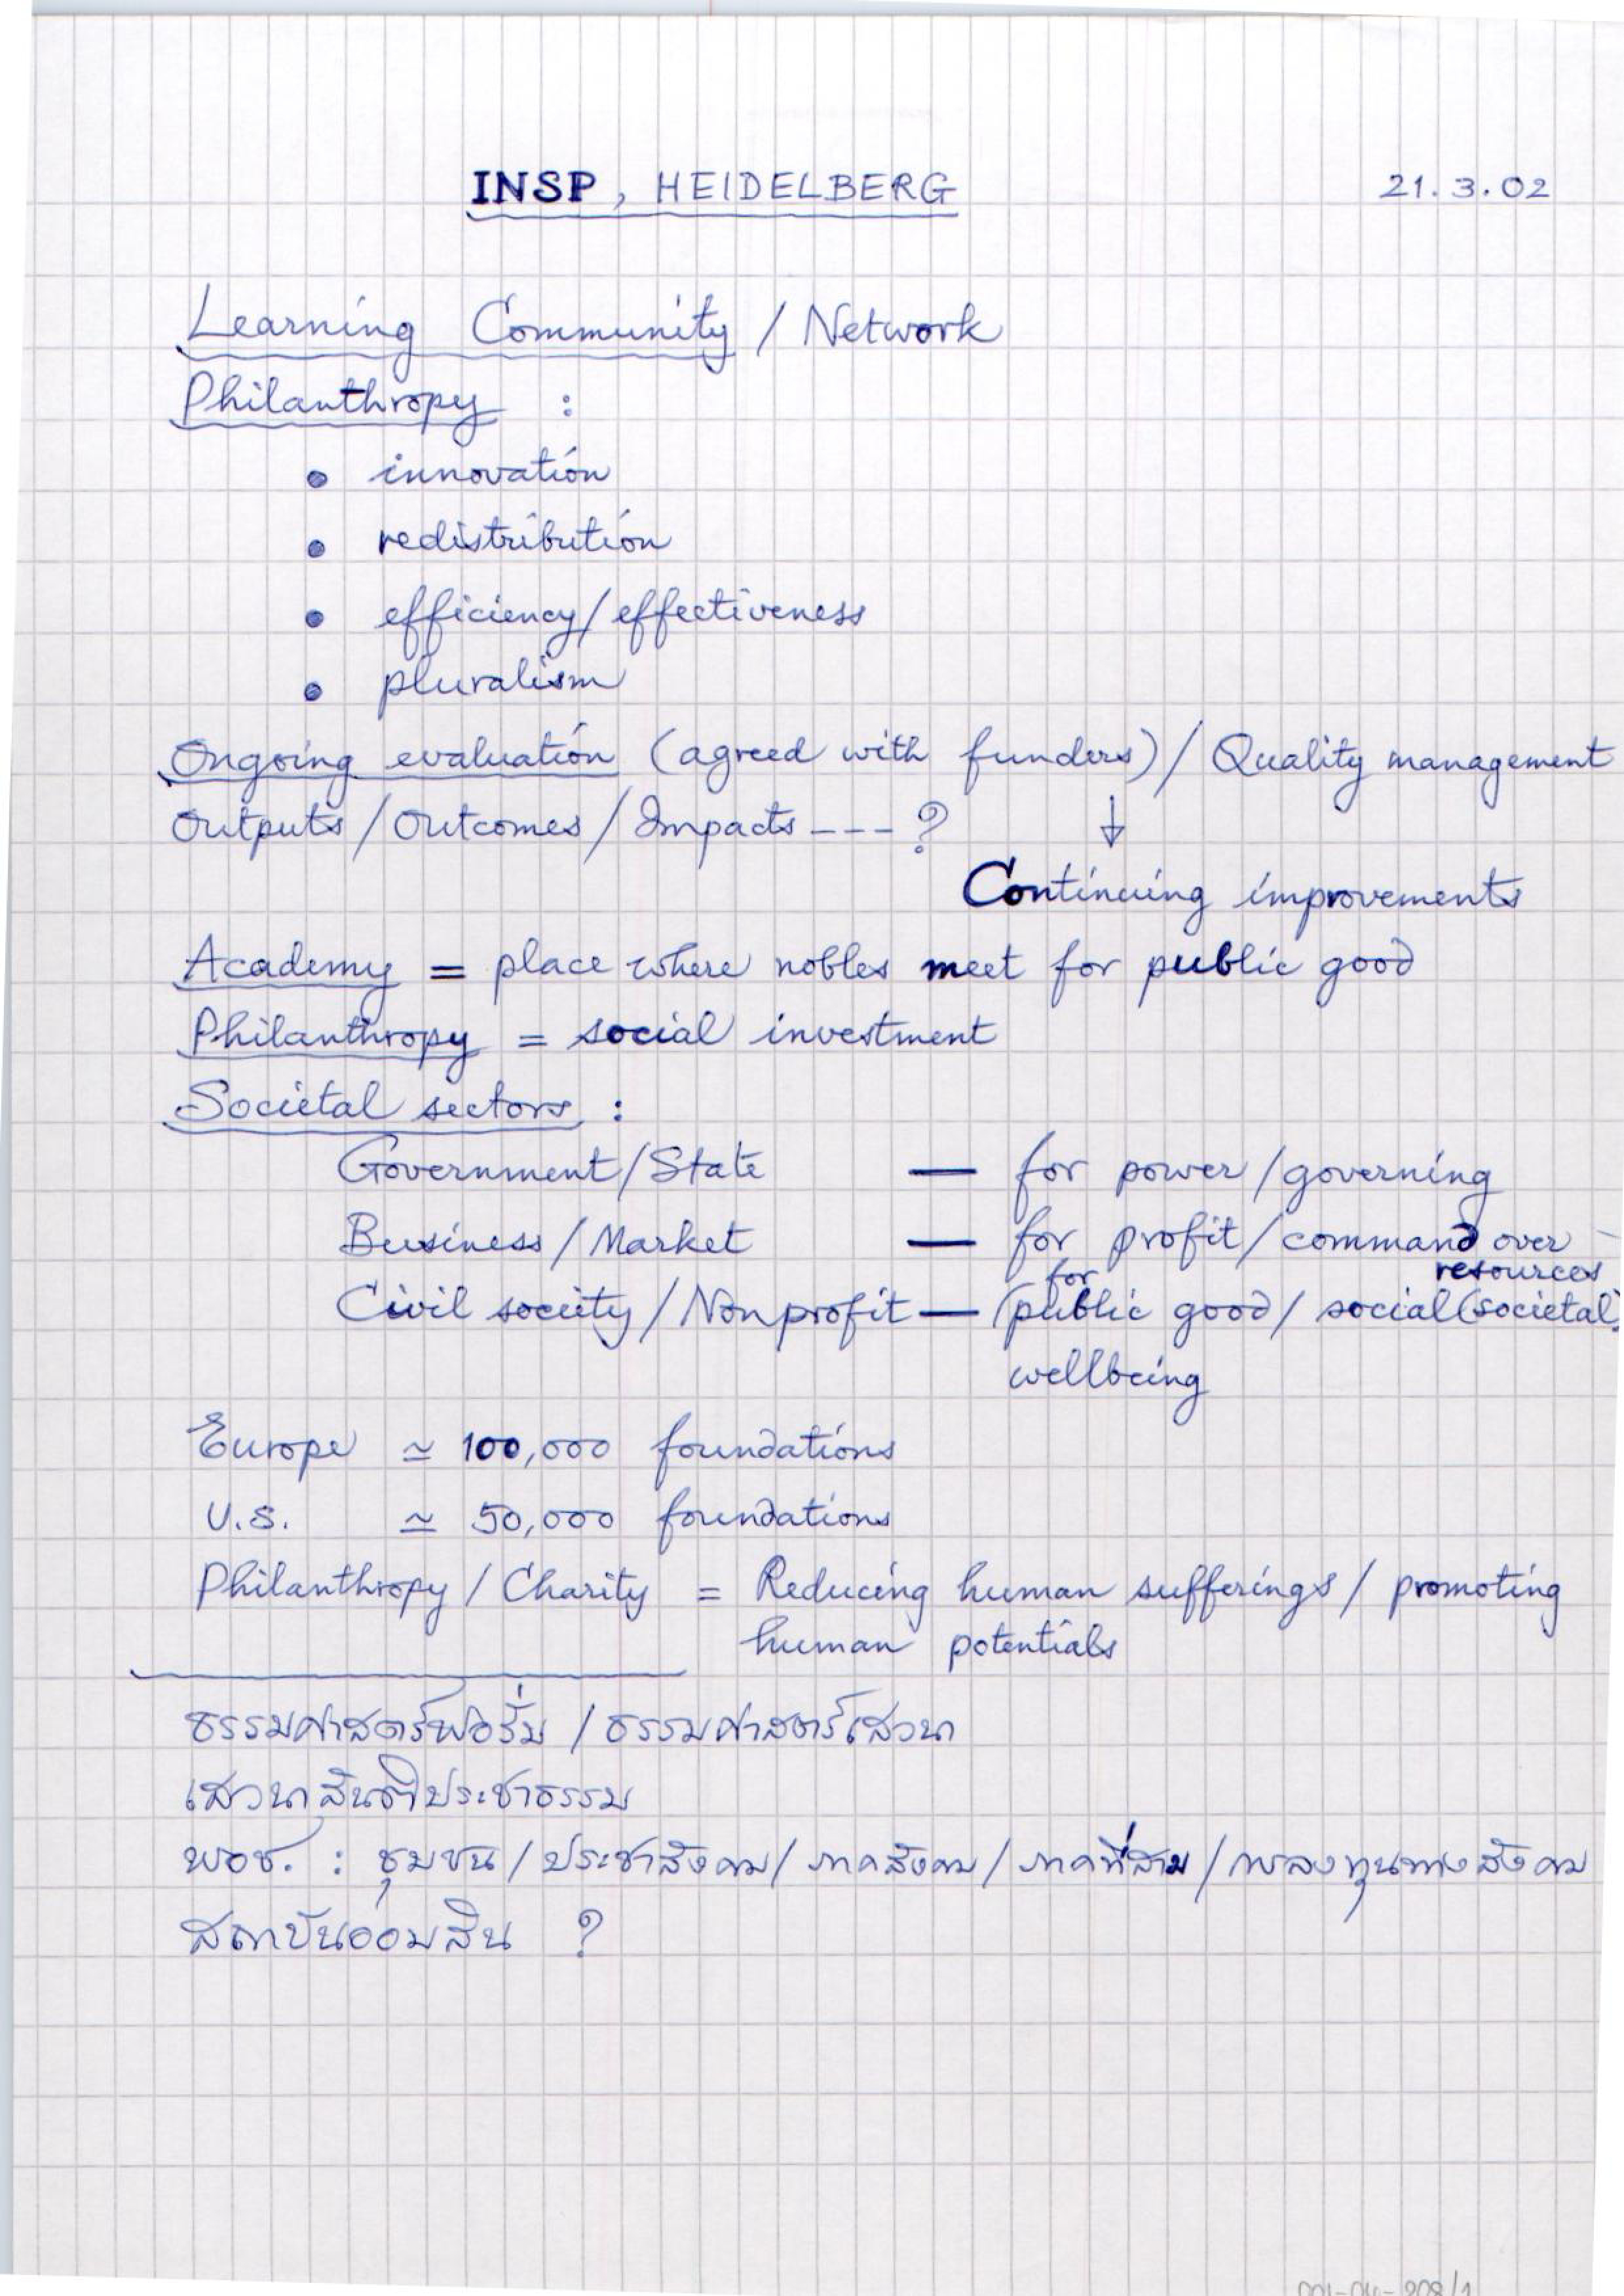 INSP, HEIDELBERG 21.3.02
Learning Community / Network
Philanthropy :
• innovation
• redistribution
• efficiency/effectiveness
• pluralism
Ongoing evaluation (agreed with funders) / Quality management
Outputs / Outcomes / Impacts --- ? ↓
Continuing improvements
Academy = place where nobles meet for public good
Philanthropy = social investment
Societal sectors :
Government/State — for power/governing
Business/Market — for profit/command over resources
Civil society/Nonprofit — for public good/social (societal)
wellbeing
Europe ≃ 100,000 foundations
U.S. ≃ 50,000 foundations
Philanthropy / Charity = Reducing human sufferings / promoting
human potentials
ธรรมศาสตร์ฟอรั่ม / ธรรมศาสตร์เสวนา
เสวนาสันติประชาธรรม
พอช. : ชุมชน / ประชาสังคม / ภาคสังคม / ภาคที่สาม / การลงทุนทางสังคม
สถาบันออมสิน ?